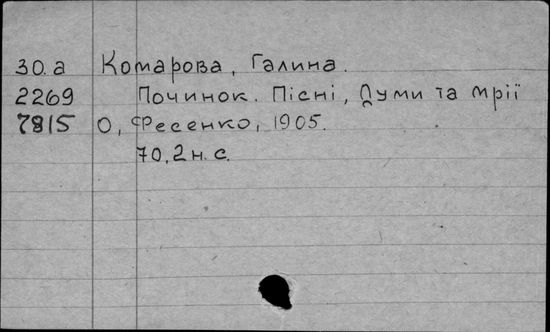 30.а Комарова, Галина.
2269 Починок. Пісні, Думи та мрії
7815 О, Фесенко, 1905.
70, 2 н. с.